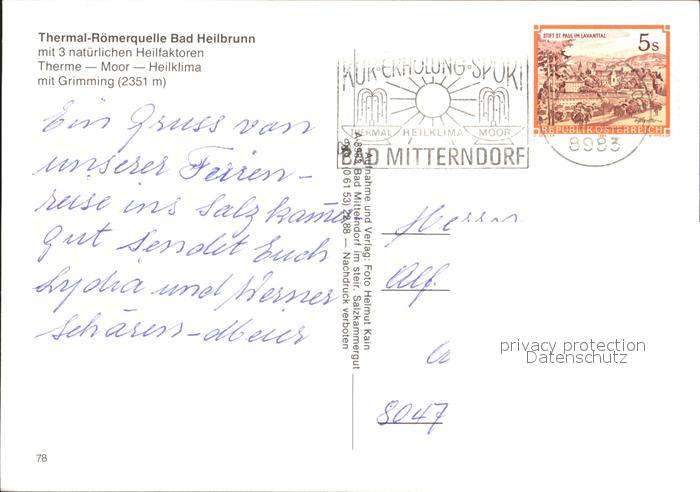 Thermal-Römerquelle Bad Heilbrunn
mit 3 natürlichen Heilfaktoren
Therme — Moor — Heilklima
mit Grimming (2351 m)
Ein Gruss von
unserer Ferien-
reise ins Salzkammer
gut sendet Euch
Lydia und Werner
Schären-Meier
78
Aufnahme und Verlag: Foto Helmut Kain
A-8983 Bad Mitterndorf im steir. Salzkammergut
(0 61 53) 22 88 — Nachdruck verboten
KUR·ERHOLUNG·SPORT
THERMAL HEILKLIMA MOOR
BAD MITTERNDORF
8983
STIFT ST. PAUL IM LAVANTTAL
5 S
REPUBLIK ÖSTERREICH
Herrn
Alf.
8047
privacy protection
Datenschutz